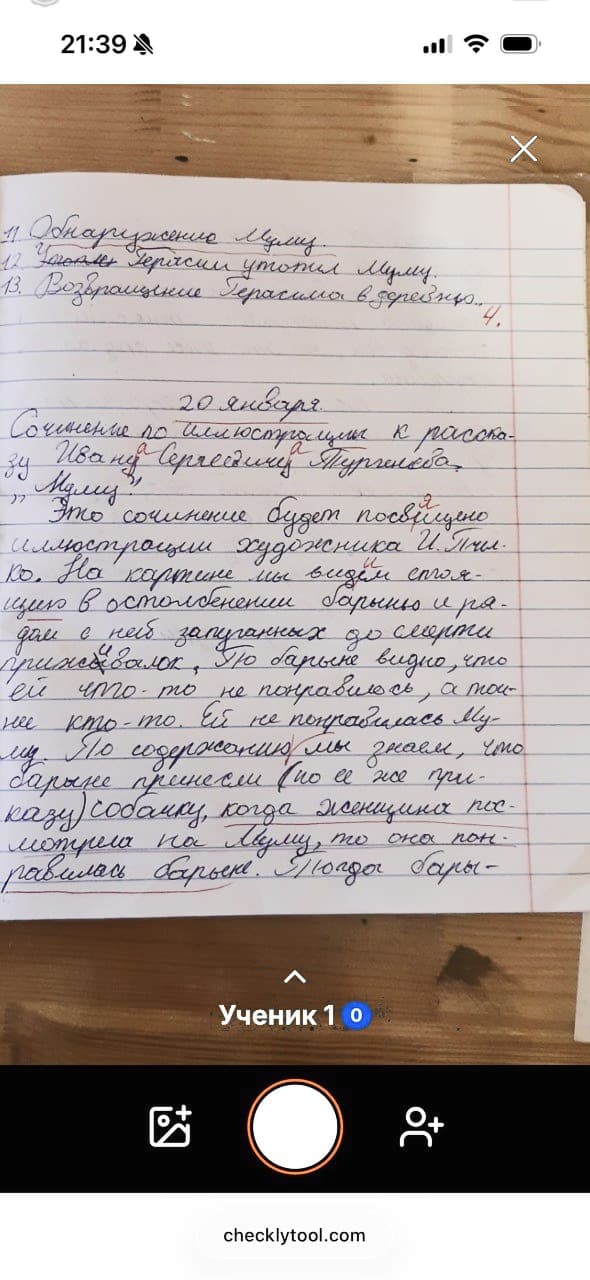 21:39
11 Обнаружение Муму.
12 Утопле Герасим утопил Муму.
13. Возвращение Герасима в деревню.
4.
20 января.
Сочинение по иллюстрации к расска-
зу Ивану Сергеевичу Тургенева,
„Муму".
Это сочинение будет посвящено
иллюстрации художника И. Пчел-
ко. На картине мы видем стоя-
щию в остолбенении барыню и ря-
дом с ней запуганных до смерти
приживалок. По барыне видно, что
ей что-то не понравилось, а точ-
нее кто-то. Ей не понравилась Му-
му. По содержанию мы знаем, что
барыне принесли (по ее же при-
казу) собачку, когда женщина пос-
мотрела на Муму, то она пон-
равилась барыне. Тогда бары-
Ученик 1 0
checklytool.com